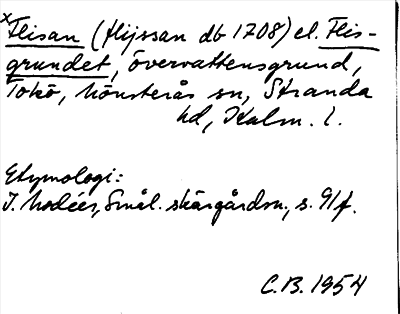 x Flisan (Flijssan db 1708) el. Flis-
grundet, övervattensgrund,
Tokö, Mönsterås sn, Stranda
hd, Kalm. l.
Etymologi:
I. Modéer, Smål. skärgårdsn., s. 91f.
C.B. 1954